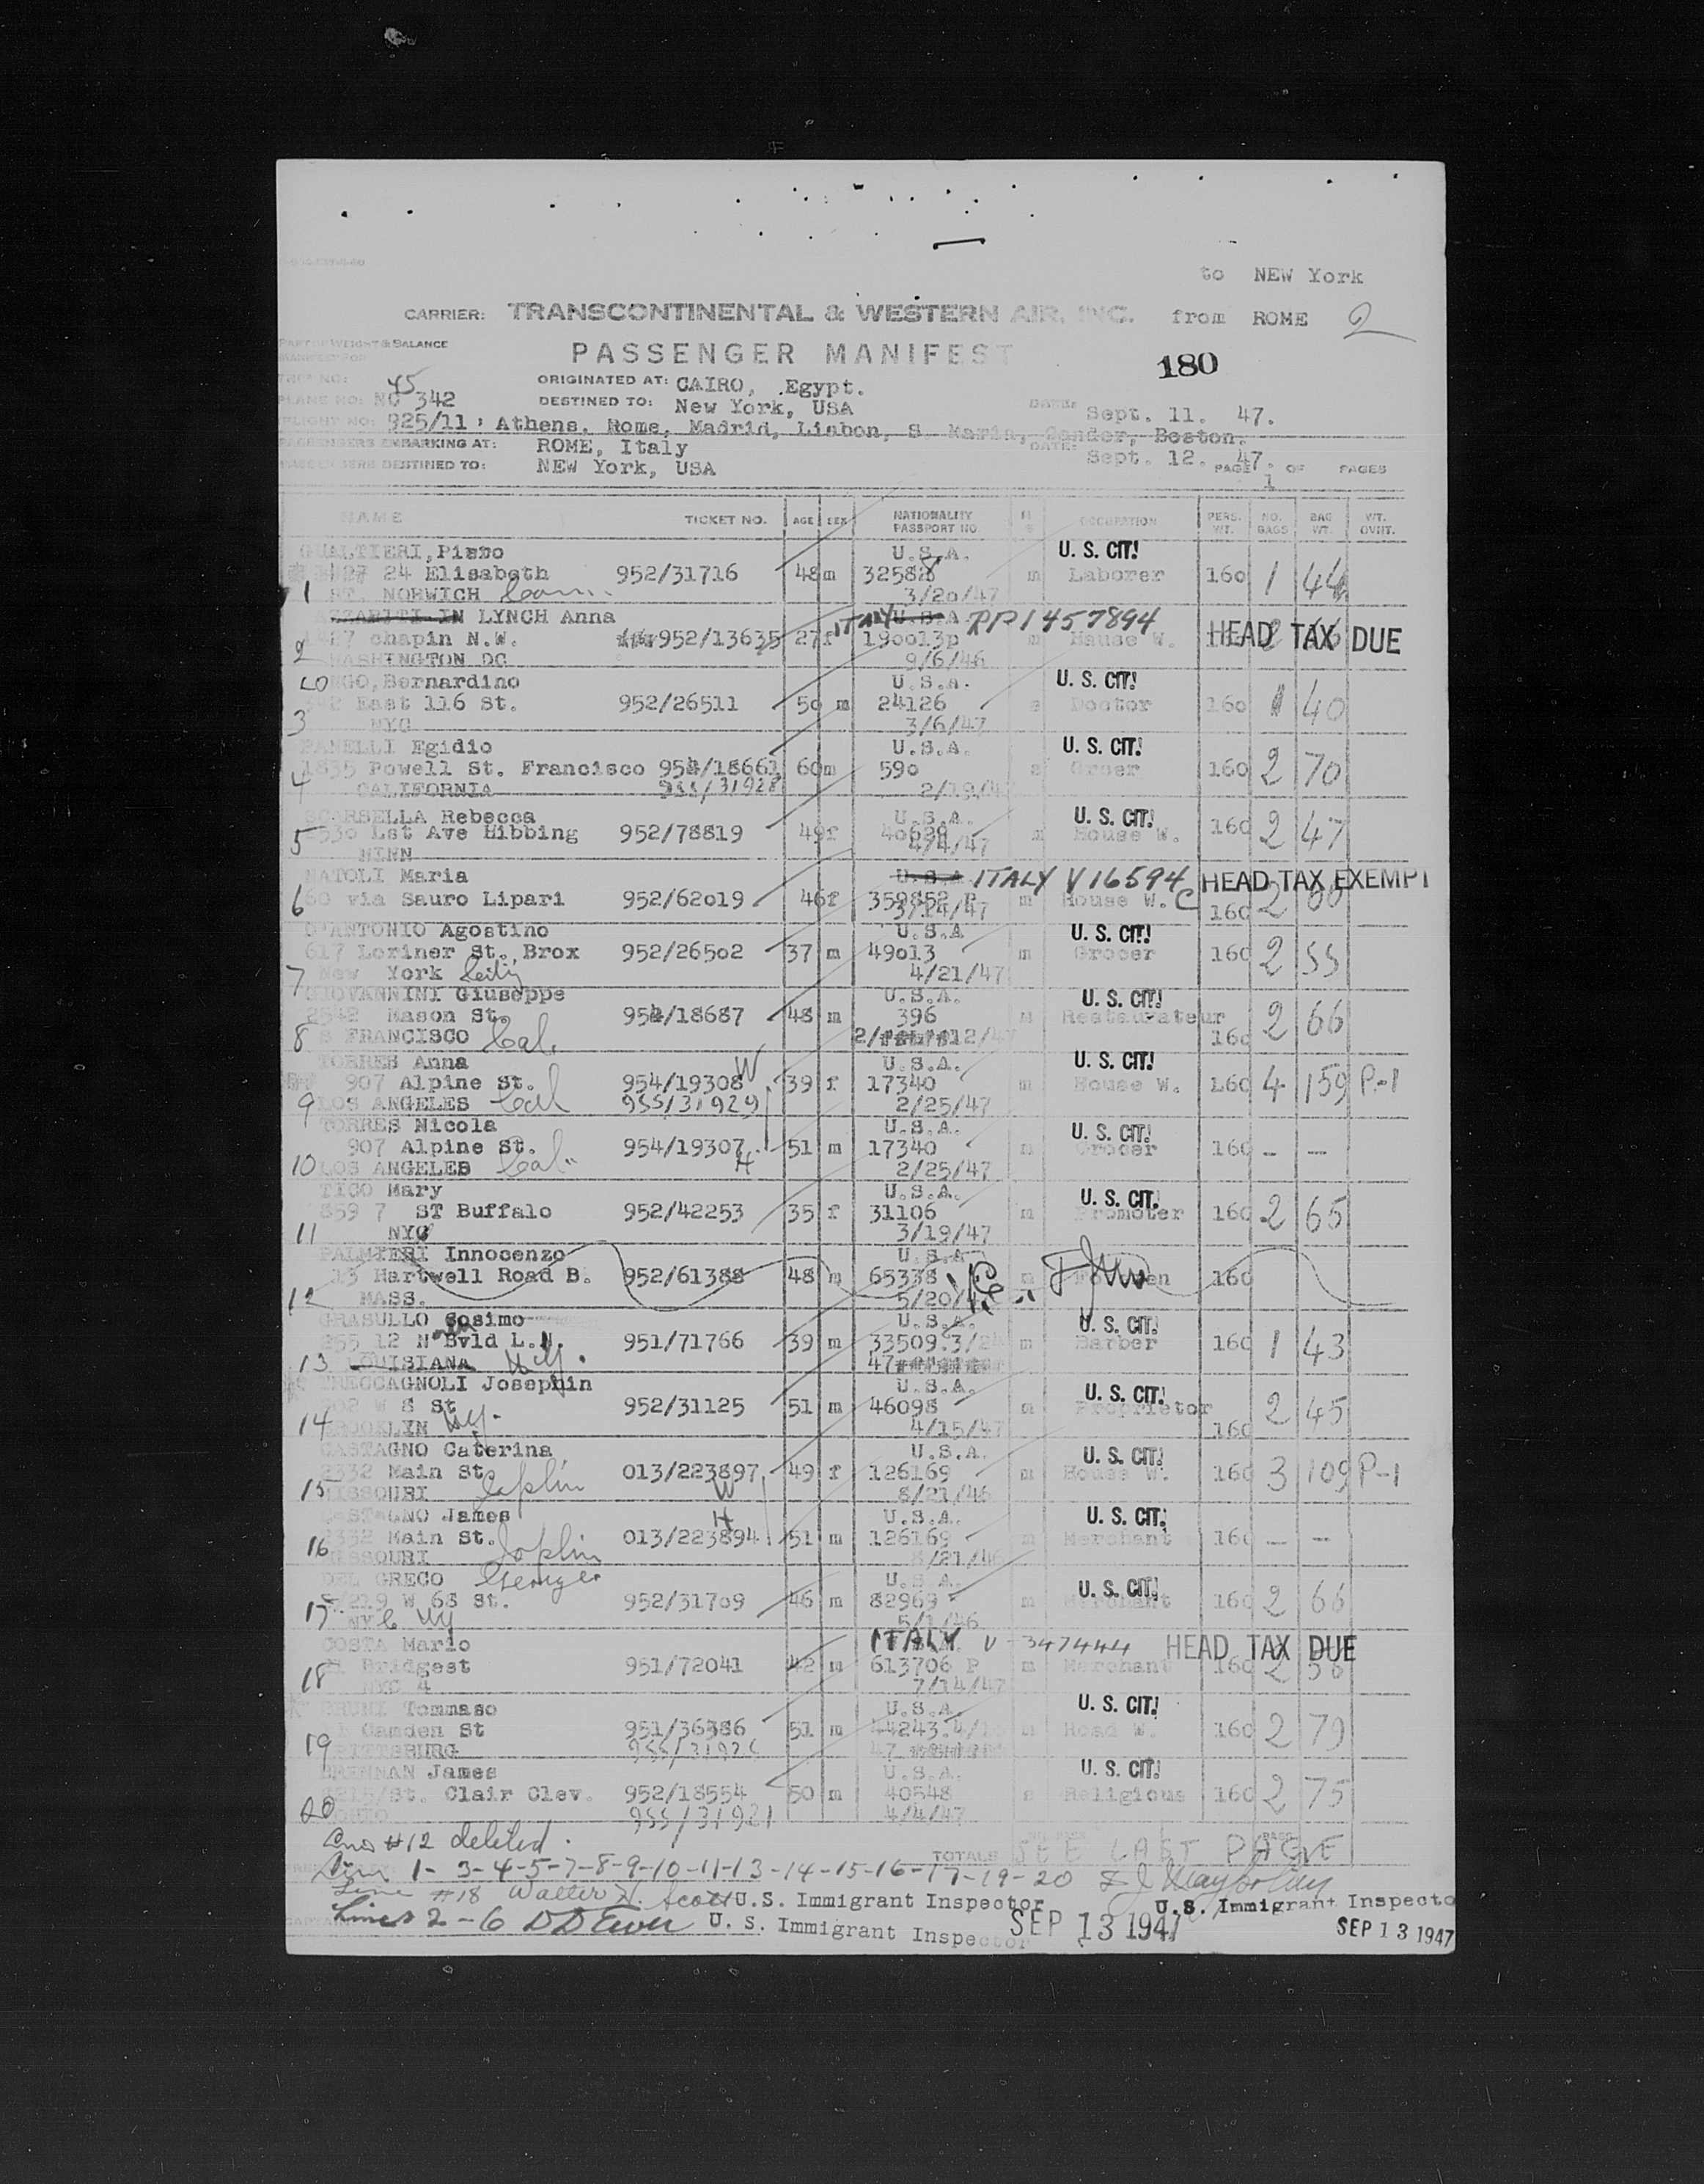 to NEW York
CARRIER: TRANSCONTINENTAL & WESTERN AIR, INC. from ROME 2
PART OF WEIGHT & BALANCE
MANIFEST FOR
PASSENGER MANIFEST
180
TRIP NO: 45 ORIGINATED AT: CAIRO, Egypt.
PLANE NO: NC 342 DESTINED TO: New York, USA DATE: Sept. 11. 47.
FLIGHT NO: 925/11 Athens. Rome, Madrid, Lisbon, S Maria, Gander, Boston.
PASSENGERS EMBARKING AT: ROME, Italy DATE: Sept. 12. 47.
PASSENGERS DESTINED TO: NEW York, USA PAGE 1 OF PAGES
NAME TICKET NO. AGE SEX NATIONALITY PASSPORT NO. OCCUPATION PERS. WT. NO. BAGS BAG WT. WT. OVHT.
GUALTIERI, U.S.A. U. S. CIT!
24 Elisabeth 952/31716 48 m 32588 m Laborer 160 1 44
1 ST. NORWICH Conn. 3/20/47
IN LYNCH Anna ITALY U.S.A. PP1457894
chapin N.W. 952/13635 27 f 190013p m House W. HEAD TAX DUE
2 WASHINGTON DC 9/6/46
LONGO, Bernardino U.S.A. U. S. CIT!
East 116 St. 952/26511 50 m 24126 s Doctor 160 1 40
3 NYC 3/6/47
PANELLI Egidio U.S.A. U. S. CIT!
1835 Powell St. Francisco 954/18661 60 m 590 s 160 2 70
4 CALIFORNIA 955/31928 2/19/4
SCARSELLA Rebecca U.S.A. U. S. CIT!
2530 1st Ave Hibbing 952/78819 49 f 40629 m House W. 160 2 47
5 MINN 4/4/47
NATOLI Maria U.S.A ITALY V16594 HEAD TAX EXEMPT
6 60 via Sauro Lipari 952/62019 46 f 359852 P m House W. C 160 2
3/14/47
D'ANTONIO Agostino U.S.A U. S. CIT!
617 Lorimer St., Brox 952/26502 37 m 49013 m Grocer 160 2 55
7 New York City 4/21/47
GIOVANNINI Giuseppe U.S.A. U. S. CIT!
Mason St. 954/18687 48 m 396 m Restaurateur 2 66
8 S FRANCISCO Cal. 160
TORRES Anna W U.S.A. U. S. CIT!
907 Alpine St. 954/19308 39 f 17340 m House W. 160 4 159 P-1
9 LOS ANGELES Cal 955/31929 2/25/47
TORRES Nicola U.S.A. U. S. CIT!
907 Alpine St. 954/19307 51 m 17340 m Grocer 160 - -
10 LOS ANGELES Cal. H 2/25/47
TICO Mary U.S.A. U. S. CIT.
859 7 ST Buffalo 952/42253 35 f 31106 m Promoter 160 2 65
11 NYC 3/19/47
PALMIERI Innocenzo U.S.A
13 Hartwell Road B. 952/61388 48 m 65338 m 160
12 MASS. 5/20/4
GRASULLO Cosimo U.S.A. U. S. CIT.
255 12 N Bvld L. 951/71766 39 m 33509.3/2 m Barber 160 1 43
13 LOUISIANA N.Y. 47
TRECCAGNOLI Josephin U.S.A. U. S. CIT!
W 8 St 952/31125 51 m 46098 m Proprietor 2 45
14 BROOKLIN NY. 4/15/47 160
CASTAGNO Caterina U.S.A. U. S. CIT!
2332 Main St. Joplin 013/223897 49 f 126169 m House W. 160 3 109 P-1
15 MISSOURI W 8/21/46
CASTAGNO James H U.S.A. U. S. CIT.
2332 Main St. 013/223894 51 m 126169 m Merchant 160 - -
16 MISSOURI Joplin 8/21/46
DEL GRECO George U.S.A. U. S. CIT!
W 68 St. 952/31709 46 m 82969 m Merchant 160 2 66
17 NYC NY 5/1/46
COSTA Mario ITALY V-347444 HEAD TAX DUE
Bridgest 951/72041 42 m 613706 P m Merchant 160 2
18 NYC 4 7/14/47
BRUNI Tommaso U.S.A. U. S. CIT!
Camden St 951/36386 51 m 44243.4/ m Head W. 160 2 79
19 PITTSBURG 47
BRENNAN James U.S.A. U. S. CIT!
St. Clair Clev. 952/18554 50 m 40548 s Religious 160 2 75
20 OHIO 955/31921 4/4/47
Line #12 deleted. TOTALS SEE LAST PAGE
Lines 1-3-4-5-7-8-9-10-11-13-14-15-16-17-19-20
Line #18 Walter N. Scott U.S. Immigrant Inspector U.S. Immigrant Inspecto
Lines 2-6 U. S. Immigrant Inspector SEP 13 1947 SEP 13 1947